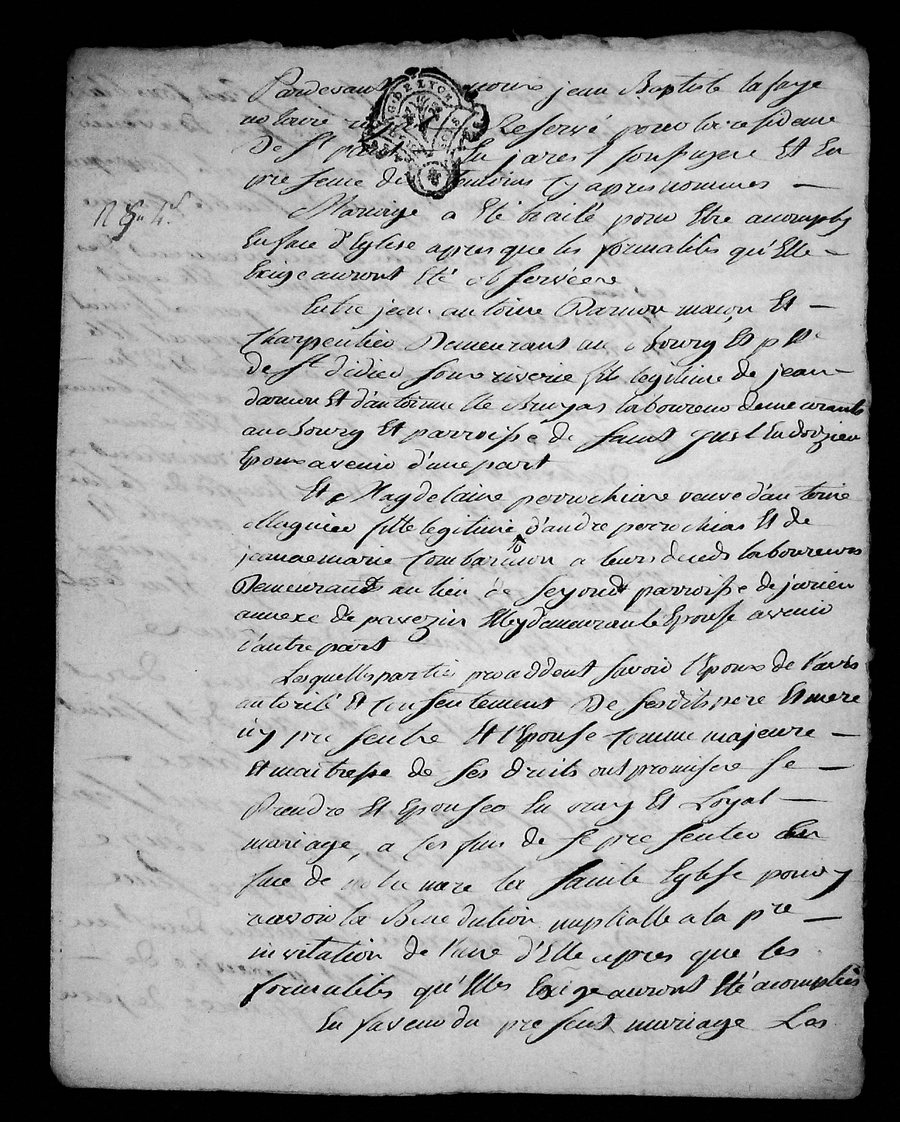 Pardevant nous jean Baptiste lafaye
notaire Reservé pour la residence
De St En jarest soussigné Et En
presence de temoins Cy apres nommes —
Mariage a Eté traité pour Etre acomply
En face d'Eglise apres que les formalités qu'Elle —
Exige auront Eté observées
Entre jean antoine Darnon maçon Et —
Charpentier Demeurant au bourg Et psse
de St didier sous riverie fils legitime de jean —
darnon Et d'antoinette Bruyas laboureur demeurants
au bourg Et parroisse de Saint just En doizieu
Epoux avenir d'une part
Et Magdelaine perrochine veuve d'antoine
Magnier fille legitime d'andre perrochias Et de
jeanne marie Combarmon a leurs deceds laboureurs
Demeurands au lieu de parroisse de jurieu
annexe de pavezin Elle y demeurante Epouse avenir
D'autre part
Lesquelles parties proceddent savoir l'Epoux de l'avis
autorité Et Consentement De sesdits pere Et mere
icy presents Et l'Epouse Comme majeure —
Et maitresse de ses droits ont promis se —
Prendre Et Epouser En vray Et Loyal —
mariage, a ces fins de se presenter En
face de notre mere la Sainte Eglise pour y
recevoir la Benediction nuptialle a la pre —
invitation de l'une d'Elle apres que les
formalités qu'Elles Exige auront Eté acomplies
En faveur du present mariage Les